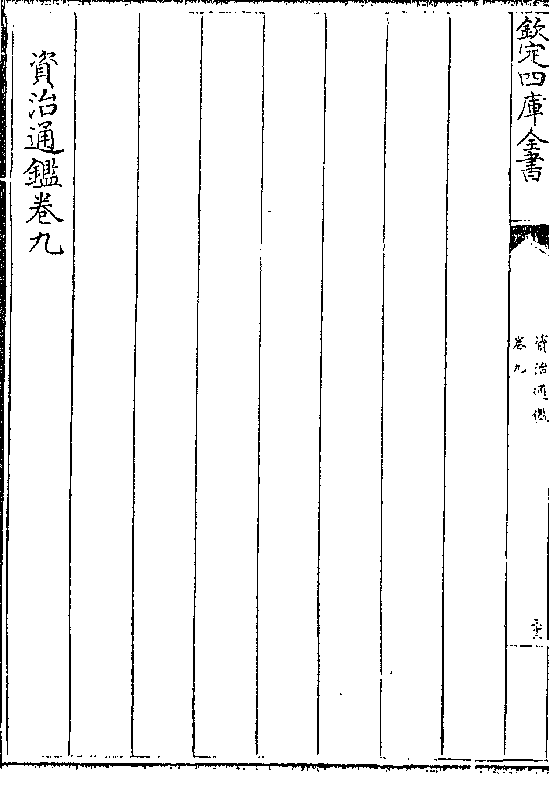 欽定四庫全書
資治通鑑
卷九
資治通鑑卷九